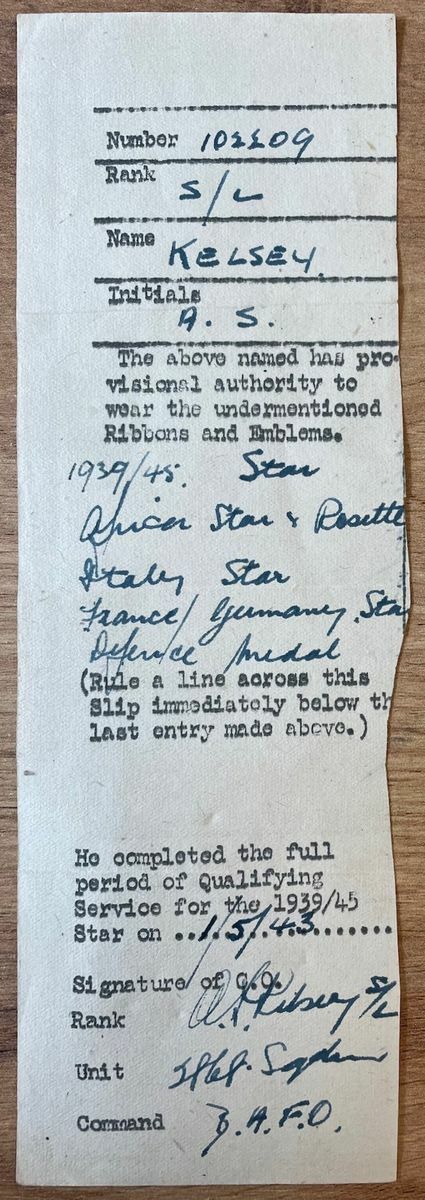 Number 102209
Rank
S/L
Name KELSEY
Initials
A. S.
The above named has pro-
visional authority to
wear the undermentioned
Ribbons and Emblems.
1939/45. Star
Africa Star & Rosette
Italy Star
France/Germany Star
Defence Medal
(Rule a line across this
Slip immediately below th
last entry made above.)
He completed the full
period of Qualifying
Service for the 1939/45
Star on ..1/5/43.......
Signature of C.O.
Rank A.S. Kelsey S/L
Unit Sqdn
Command B.A.F.O.